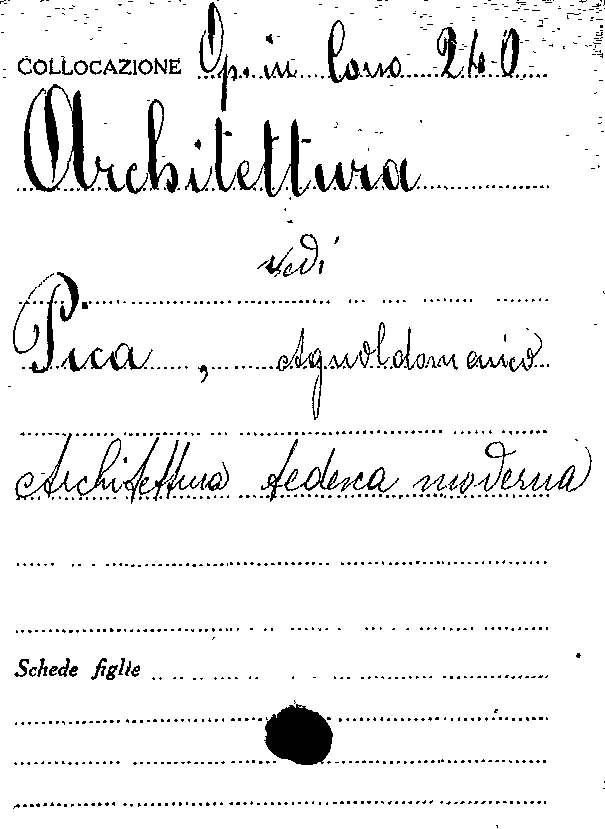 COLLOCAZIONE Op. in Cons 240
Architettura
vedi
Pica, Agnoldomenico
Architettura tedesca moderna
Schede figlie